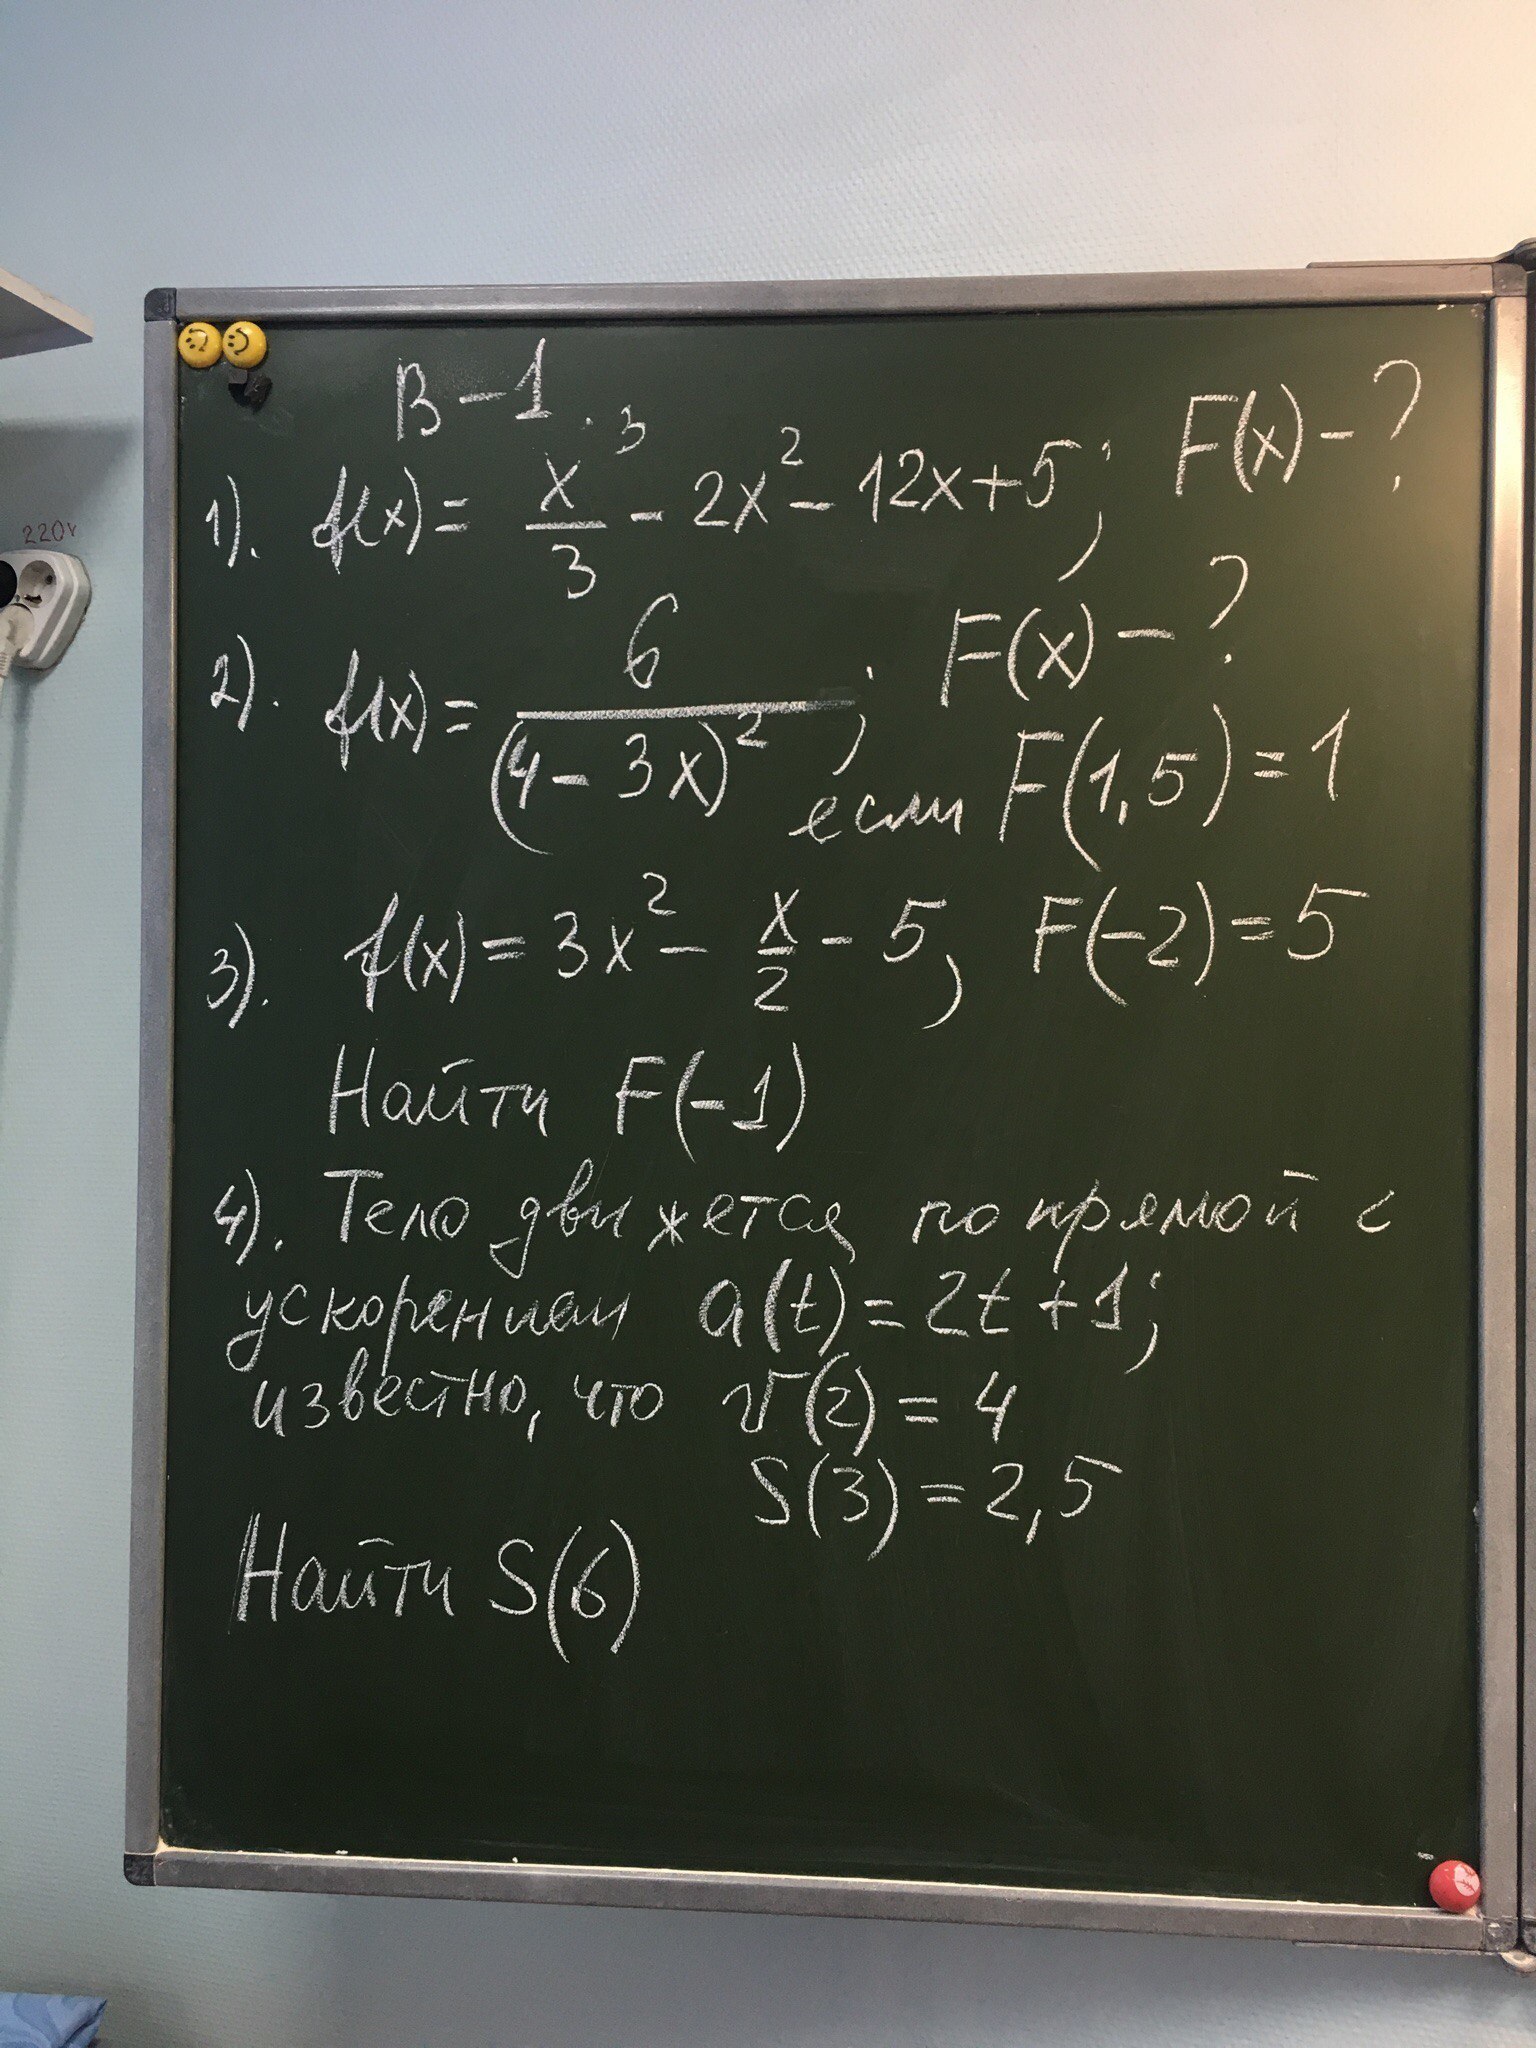 220v
В-1
1). f(x) = x³/3 - 2x² - 12x + 5; F(x) - ?
2). f(x) = 6/(4 - 3x)²; F(x) - ?
если F(1,5) = 1
3). f(x) = 3x² - x/2 - 5, F(-2) = 5
Найти F(-1)
4). Тело движется по прямой с
ускорением a(t) = 2t + 1;
известно, что v(2) = 4
S(3) = 2,5
Найти S(6)